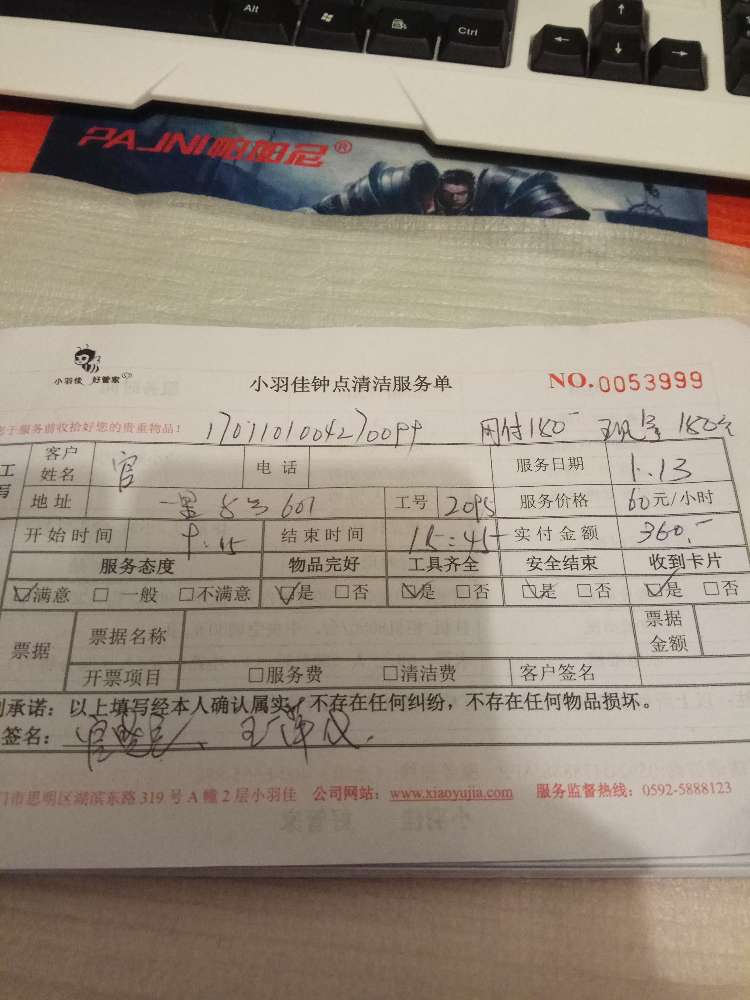 Alt
Ctrl
PAJNI帕加尼®
小羽佳 好管家
小羽佳钟点清洁服务单
NO.0053999
于服务前收拾好您的贵重物品!
现金180元
工
写
客户
姓名
官
电 话
服务日期
1.13
地址
601
工号
2095
服务价格
60元/小时
开始时间
9:45
结束时间
15:45
实付金额
360.-
服务态度
物品完好
工具齐全
安全结束
收到卡片
☑满意 □ 一般 □不满意
☑是 □否
☑是 □否
☑是 □否
☑是 □否
票据
票据名称
票据
金额
开票项目
□服务费
□清洁费
客户签名
承诺:以上填写经本人确认属实,不存在任何纠纷,不存在任何物品损坏。
签名:
门市思明区湖滨东路 319 号 A 幢 2 层小羽佳 公司网站:www.xiaoyujia.com 服务监督热线:0592-5888123